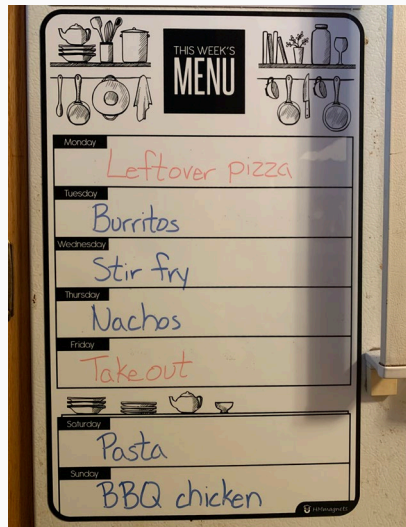 THIS WEEK'S
MENU
Monday
Leftover pizza
Tuesday
Burritos
Wednesday
Stir fry
Thursday
Nachos
Friday
Takeout
Saturday
Pasta
Sunday
BBQ chicken